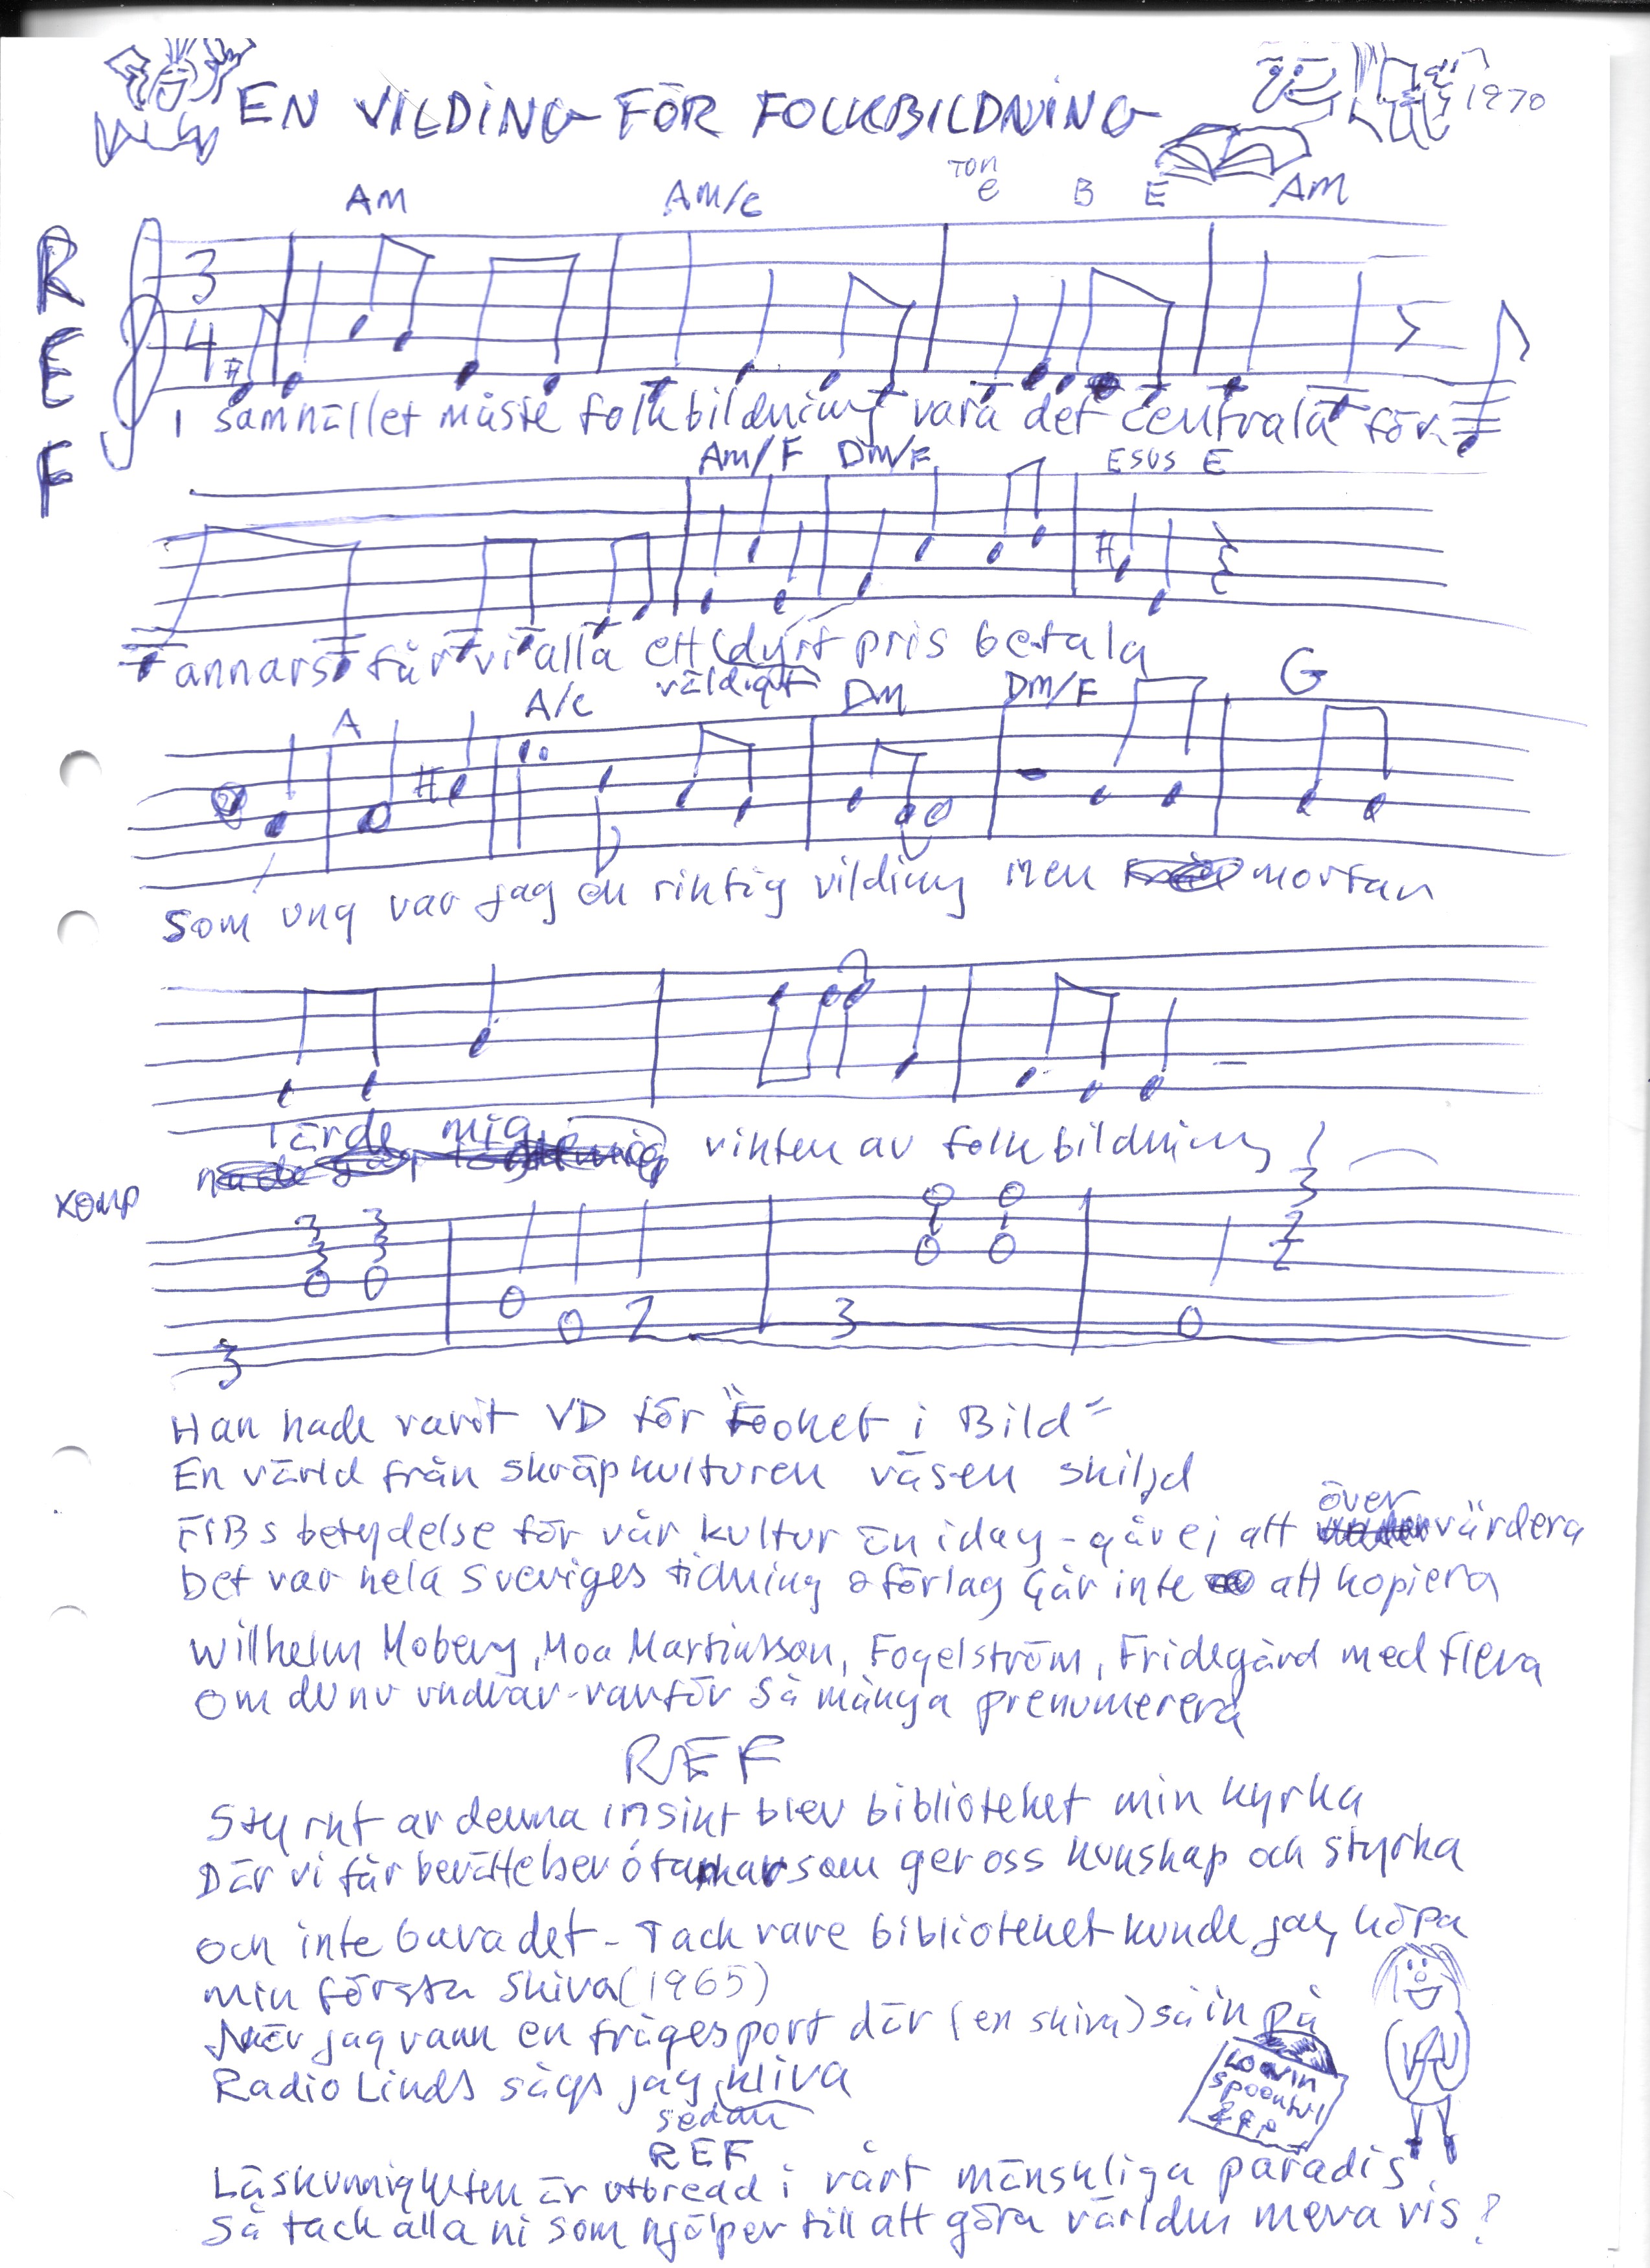 EN VILDING FÖR FOLKBILDNING
1970
REF
TON
AM AM/C e B E AM
3
4
I samhället måste folkbildning vara det centrala för
Am/F Dm/F ESUS E
annars får vi alla ett dyrt pris betala
väldigt
A A/C DM DM/F G
Som ung var jag en riktig vilding men morfar
lärde mig vikten av folkbildning!
KOMP
3 3 3
3 3 2
0 0 0 0 2 3 0 0 0 2
3
Han hade varit VD för "Focket i Bild"
En värld från skräpkulturen väsen skiljd
FIBs betydelse för vår kultur än idag - går ej att övervärdera
Det var hela Sveriges tidning & förlag går inte att kopiera
Wilhelm Moberg, Moa Martinsson, Fogelström, Fridegård med flera
Om du nu undrar - varför så många prenumerera
REF
Styrkt av denna insikt blev biblioteket min kyrka
Där vi får berättelser ó tankar som ger oss kunskap och styrka
och inte bara det - Tack vare biblioteket kunde jag köpa
min första skiva (1965)
När jag vann en frågesport där (en skiva) så in på
Radio Linds sågs jag kliva
sedan
LOOVIN
SPOONFUL
REF
Läskunnigheten är utbredd i vårt mänskliga paradis.
Så tack alla ni som hjälper till att göra världen mera vis!